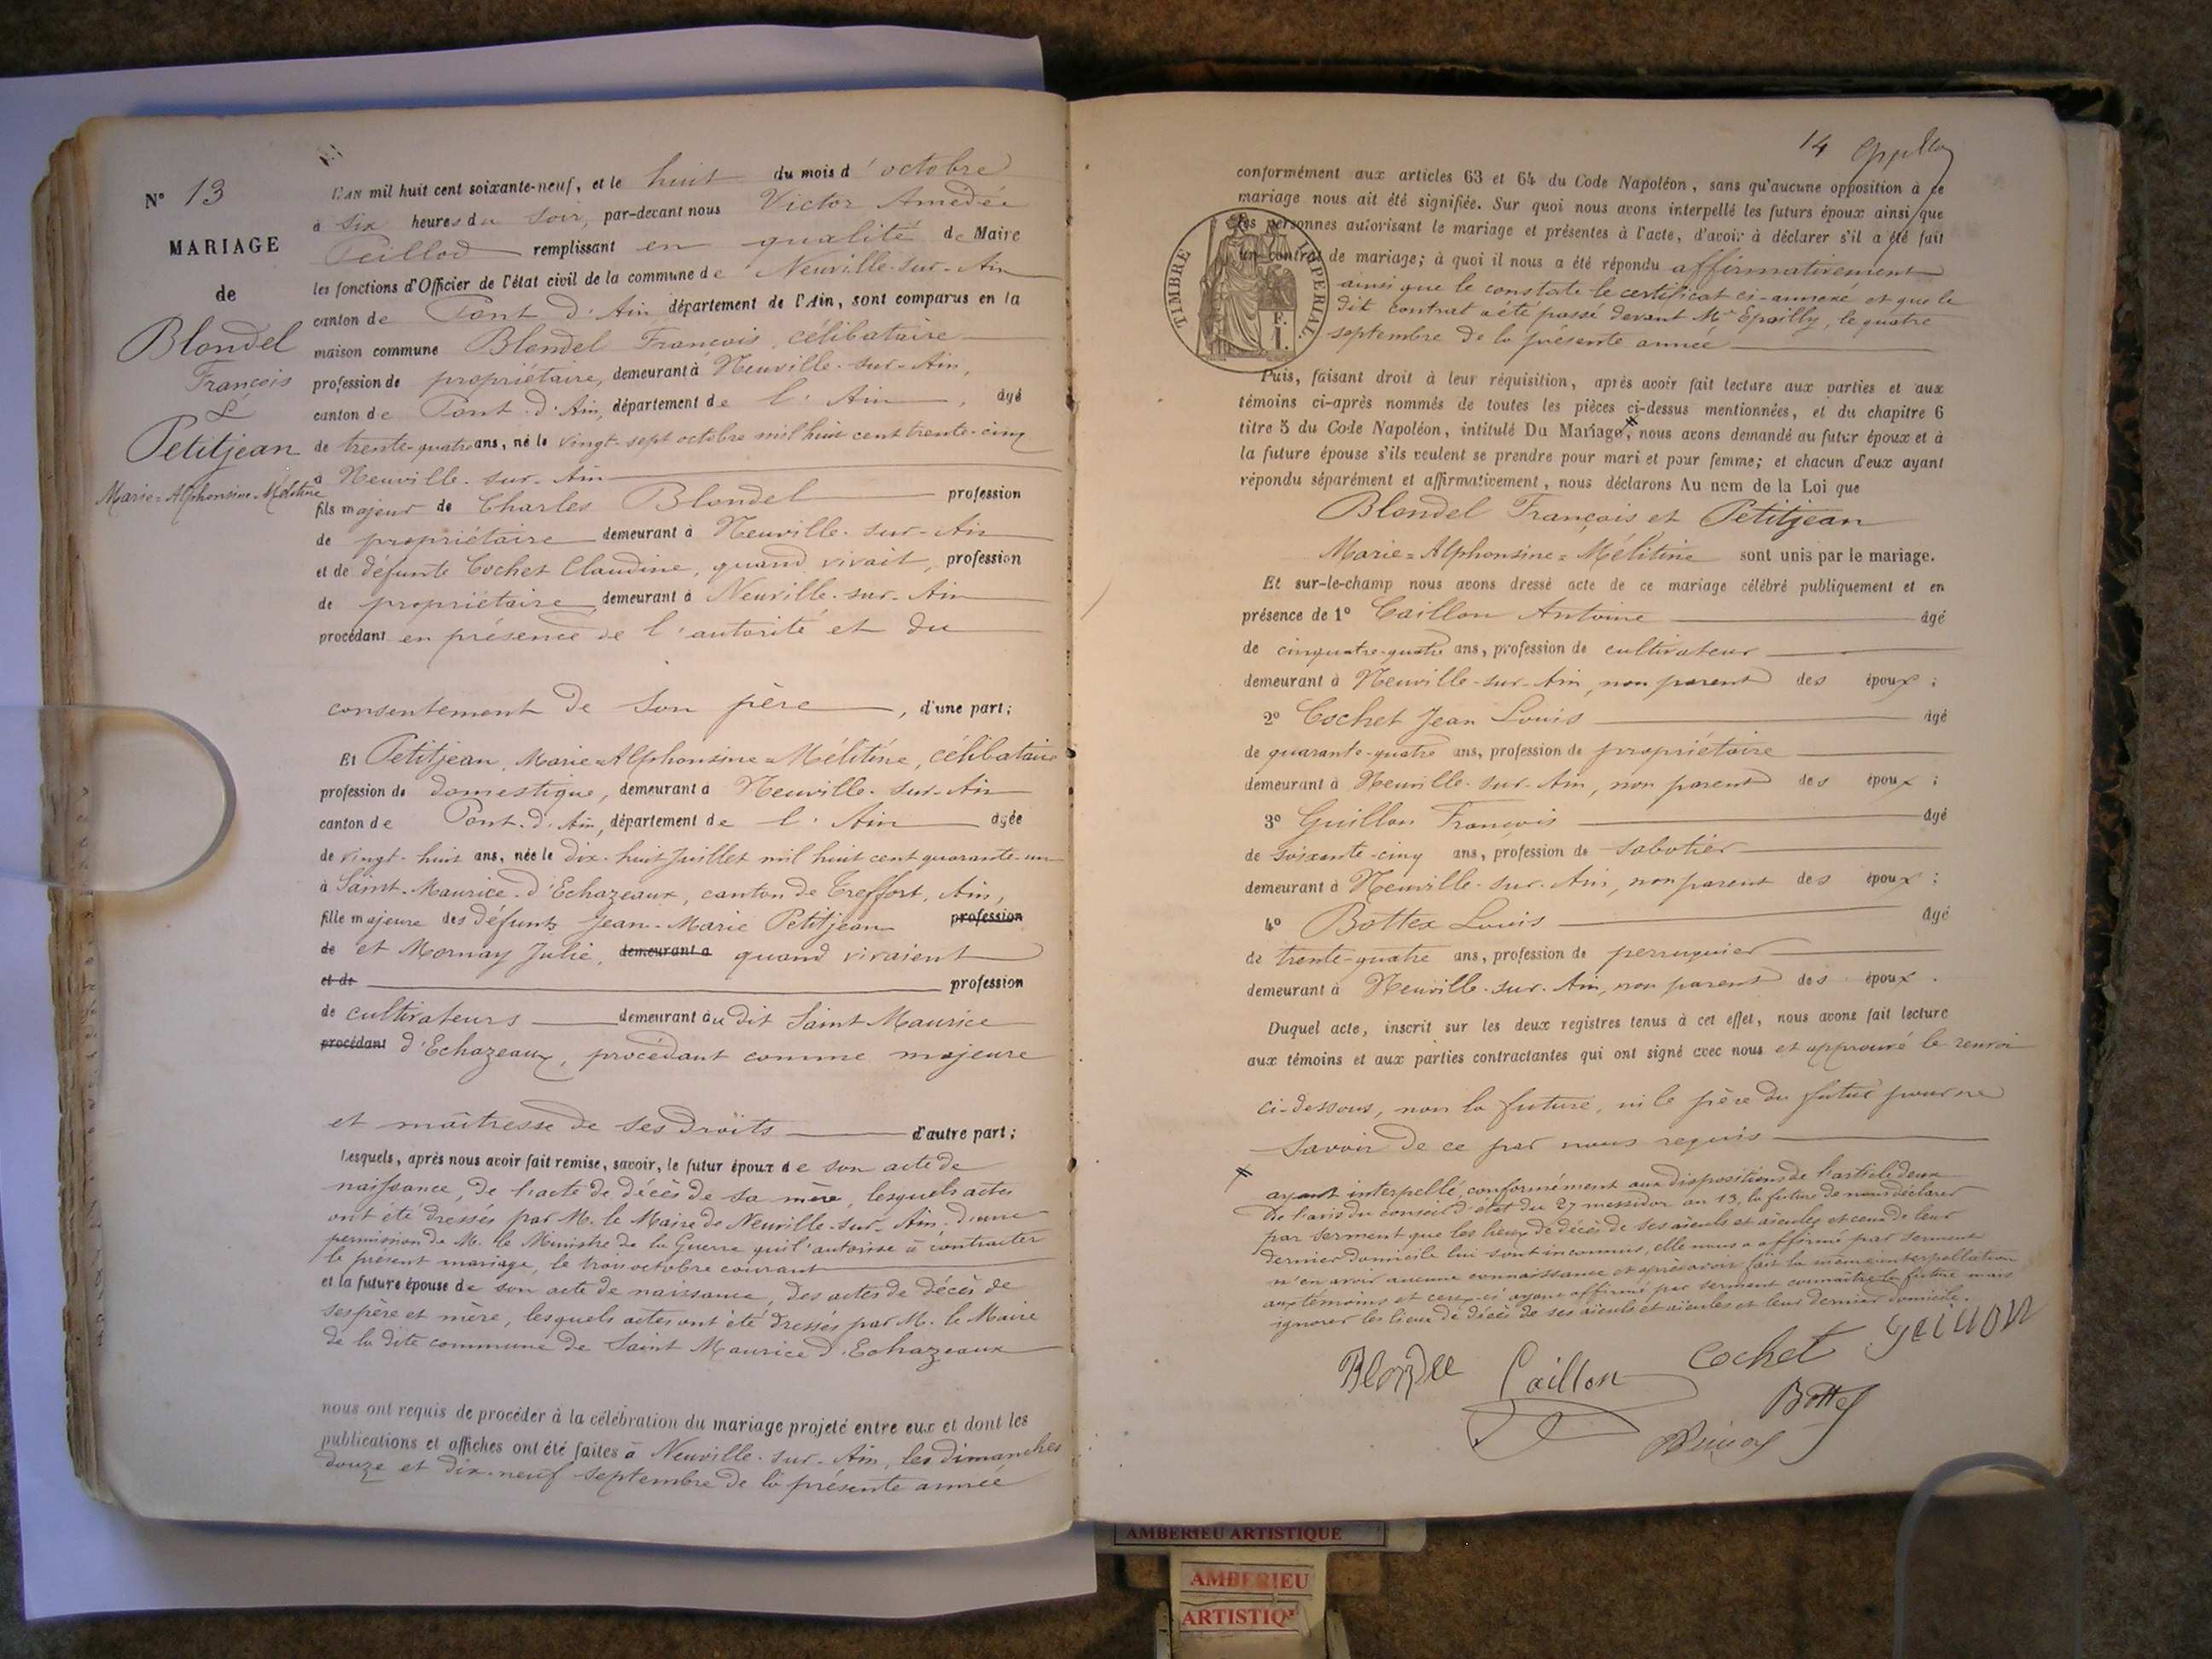 N° 13
MARIAGE
de
Blondel
François
&
Petitjean
Marie=Alphonsine=Mélitine
L'AN mil huit cent soixante-neuf, et le huit du mois d'octobre
à six heures du soir, par-devant nous Victor Amédée
Peillod remplissant en qualité de Maire
les fonctions d'Officier de l'état civil de la commune de Neuville-sur-Ain
canton de Pont d'Ain département de l'Ain, sont comparus en la
maison commune Blondel François, célibataire
profession de propriétaire, demeurant à Neuville-sur-Ain,
canton de Pont-d'Ain, département de l'Ain, âgé
de trente-quatre ans, né le vingt-sept octobre mil huit cent trente-cinq
à Neuville-sur-Ain
fils majeur de Charles Blondel profession
de propriétaire demeurant à Neuville-sur-Ain
et de défunte Cochet Claudine, quand vivait, profession
de propriétaire demeurant à Neuville-sur-Ain
procédant en présence de l'autorité et du
consentement de son père, d'une part;
Et Petitjean, Marie=Alphonsine=Mélitine, célibataire
profession de domestique, demeurant à Neuville-sur-Ain
canton de Pont-d'Ain, département de l'Ain âgée
de vingt-huit ans, née le dix-huit Juillet mil huit cent quarante-un
à Saint-Maurice-d'Echazeaux, canton de Treffort, Ain,
fille majeure des défunts Jean-Marie Petitjean profession
de et Mornay Julie, demeurant à quand vivaient
et de profession
de cultivateurs demeurant au dit Saint Maurice
procédant d'Echazeaux, procédant comme majeure
et maîtresse de ses droits d'autre part;
Lesquels, après nous avoir fait remise, savoir, le futur époux de son acte de
naissance, de l'acte de décès de sa mère, lesquels actes
ont été dressés par M. le Maire de Neuville-sur-Ain, d'une
permission de M. le Ministre de la Guerre qui l'autorise à contracter
le présent mariage, le trois octobre courant
et la future épouse de son acte de naissance, des actes de décès de
ses père et mère, lesquels actes ont été dressés par M. le Maire
de la dite commune de Saint Maurice d'Echazeaux
nous ont requis de procéder à la célébration du mariage projeté entre eux et dont les
publications et affiches ont été faites à Neuville-sur-Ain, les dimanches
douze et dix-neuf septembre de la présente année
14
conformément aux articles 63 et 64 du Code Napoléon, sans qu'aucune opposition à ce
mariage nous ait été signifiée. Sur quoi nous avons interpellé les futurs époux ainsi que
les personnes autorisant le mariage et présentes à l'acte, d'avoir à déclarer s'il a été fait
un contrat de mariage; à quoi il nous a été répondu affirmativement
ainsi que le constate le certificat ci-annexé et que le
dit contrat a été passé devant Me Epailly, le quatre
septembre de la présente année
TIMBRE IMPERIAL
F.
1.
Puis, faisant droit à leur réquisition, après avoir fait lecture aux parties et aux
témoins ci-après nommés de toutes les pièces ci-dessus mentionnées, et du chapitre 6
titre 5 du Code Napoléon, intitulé Du Mariage, nous avons demandé au futur époux et à
la future épouse s'ils veulent se prendre pour mari et pour femme; et chacun d'eux ayant
répondu séparément et affirmativement, nous déclarons Au nom de la Loi que
Blondel François et Petitjean
Marie=Alphonsine=Mélitine sont unis par le mariage.
Et sur-le-champ nous avons dressé acte de ce mariage célébré publiquement et en
présence de 1° Caillon Antoine âgé
de cinquatre-quatre ans, profession de cultivateur
demeurant à Neuville-sur-Ain, non parent des époux;
2° Cochet Jean Louis âgé
de quarante-quatre ans, profession de propriétaire
demeurant à Neuville-sur-Ain, non parent des époux;
3° Guillon François âgé
de soixante-cinq ans, profession de sabotier
demeurant à Neuville-sur-Ain, non parent des époux;
4° Bottex Louis âgé
de trente-quatre ans, profession de perruquier
demeurant à Neuville-sur-Ain, non parent des époux.
Duquel acte, inscrit sur les deux registres tenus à cet effet, nous avons fait lecture
aux témoins et aux parties contractantes qui ont signé avec nous et approuvé le renvoi
ci-dessous, non la future, ni le père du futur pour ne
savoir de ce par nous requis
ayant interpellé, conformément aux dispositions de l'article deux
de l'avis du conseil d'état du 27 messidor an 13, la future de nous déclarer
par serment que les lieux de décès de ses aïeuls et aïeules et ceux de leur
dernier domicile lui sont inconnus, elle nous a affirmé par serment
n'en avoir aucune connaissance et après avoir fait la même interpellation
aux témoins et ceux-ci ayant affirmé par serment connaître la future mais
ignorer les lieux de décès de ses aïeuls et aïeules et leur dernier domicile.
Blondel Caillon Cochet Guillon
Bottex
AMBERIEU ARTISTIQUE
AMBERIEU
ARTISTIQ